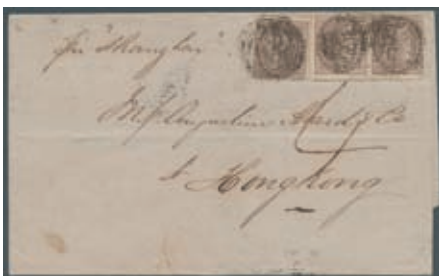 per "Shanghai"
Mess Augustine Heard & Co
Hongkong